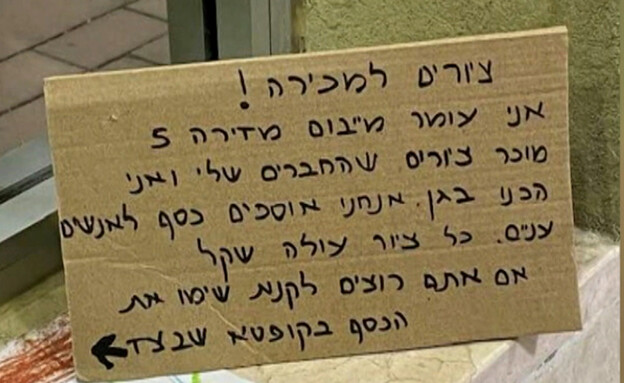 ציורים למכירה!
אני עומר מיבום מדירה 5
מוכר ציורים שהחברים שלי ואני
הכנו בגן. אנחנו אוספים כסף לאנשים
עניים. כל ציור עולה שקל
אם אתם רוצים לקנות שימו את
הכסף בקופסא שבצד ←